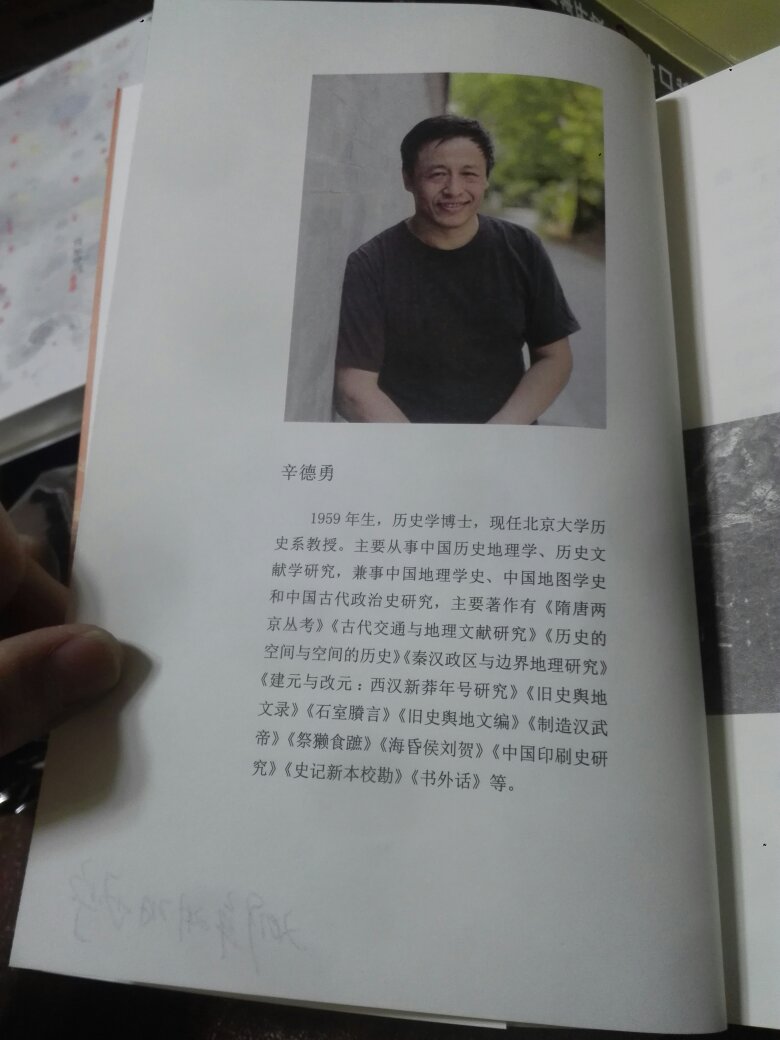 辛德勇
1959 年生，历史学博士，现任北京大学历
史系教授。主要从事中国历史地理学、历史文
献学研究，兼事中国地理学史、中国地图学史
和中国古代政治史研究，主要著作有《隋唐两
京丛考》《古代交通与地理文献研究》《历史的
空间与空间的历史》《秦汉政区与边界地理研究》
《建元与改元：西汉新莽年号研究》《旧史舆地
文录》《石室賸言》《旧史舆地文编》《制造汉武
帝》《祭獭食蹠》《海昏侯刘贺》《中国印刷史研
究》《史记新本校勘》《书外话》等。